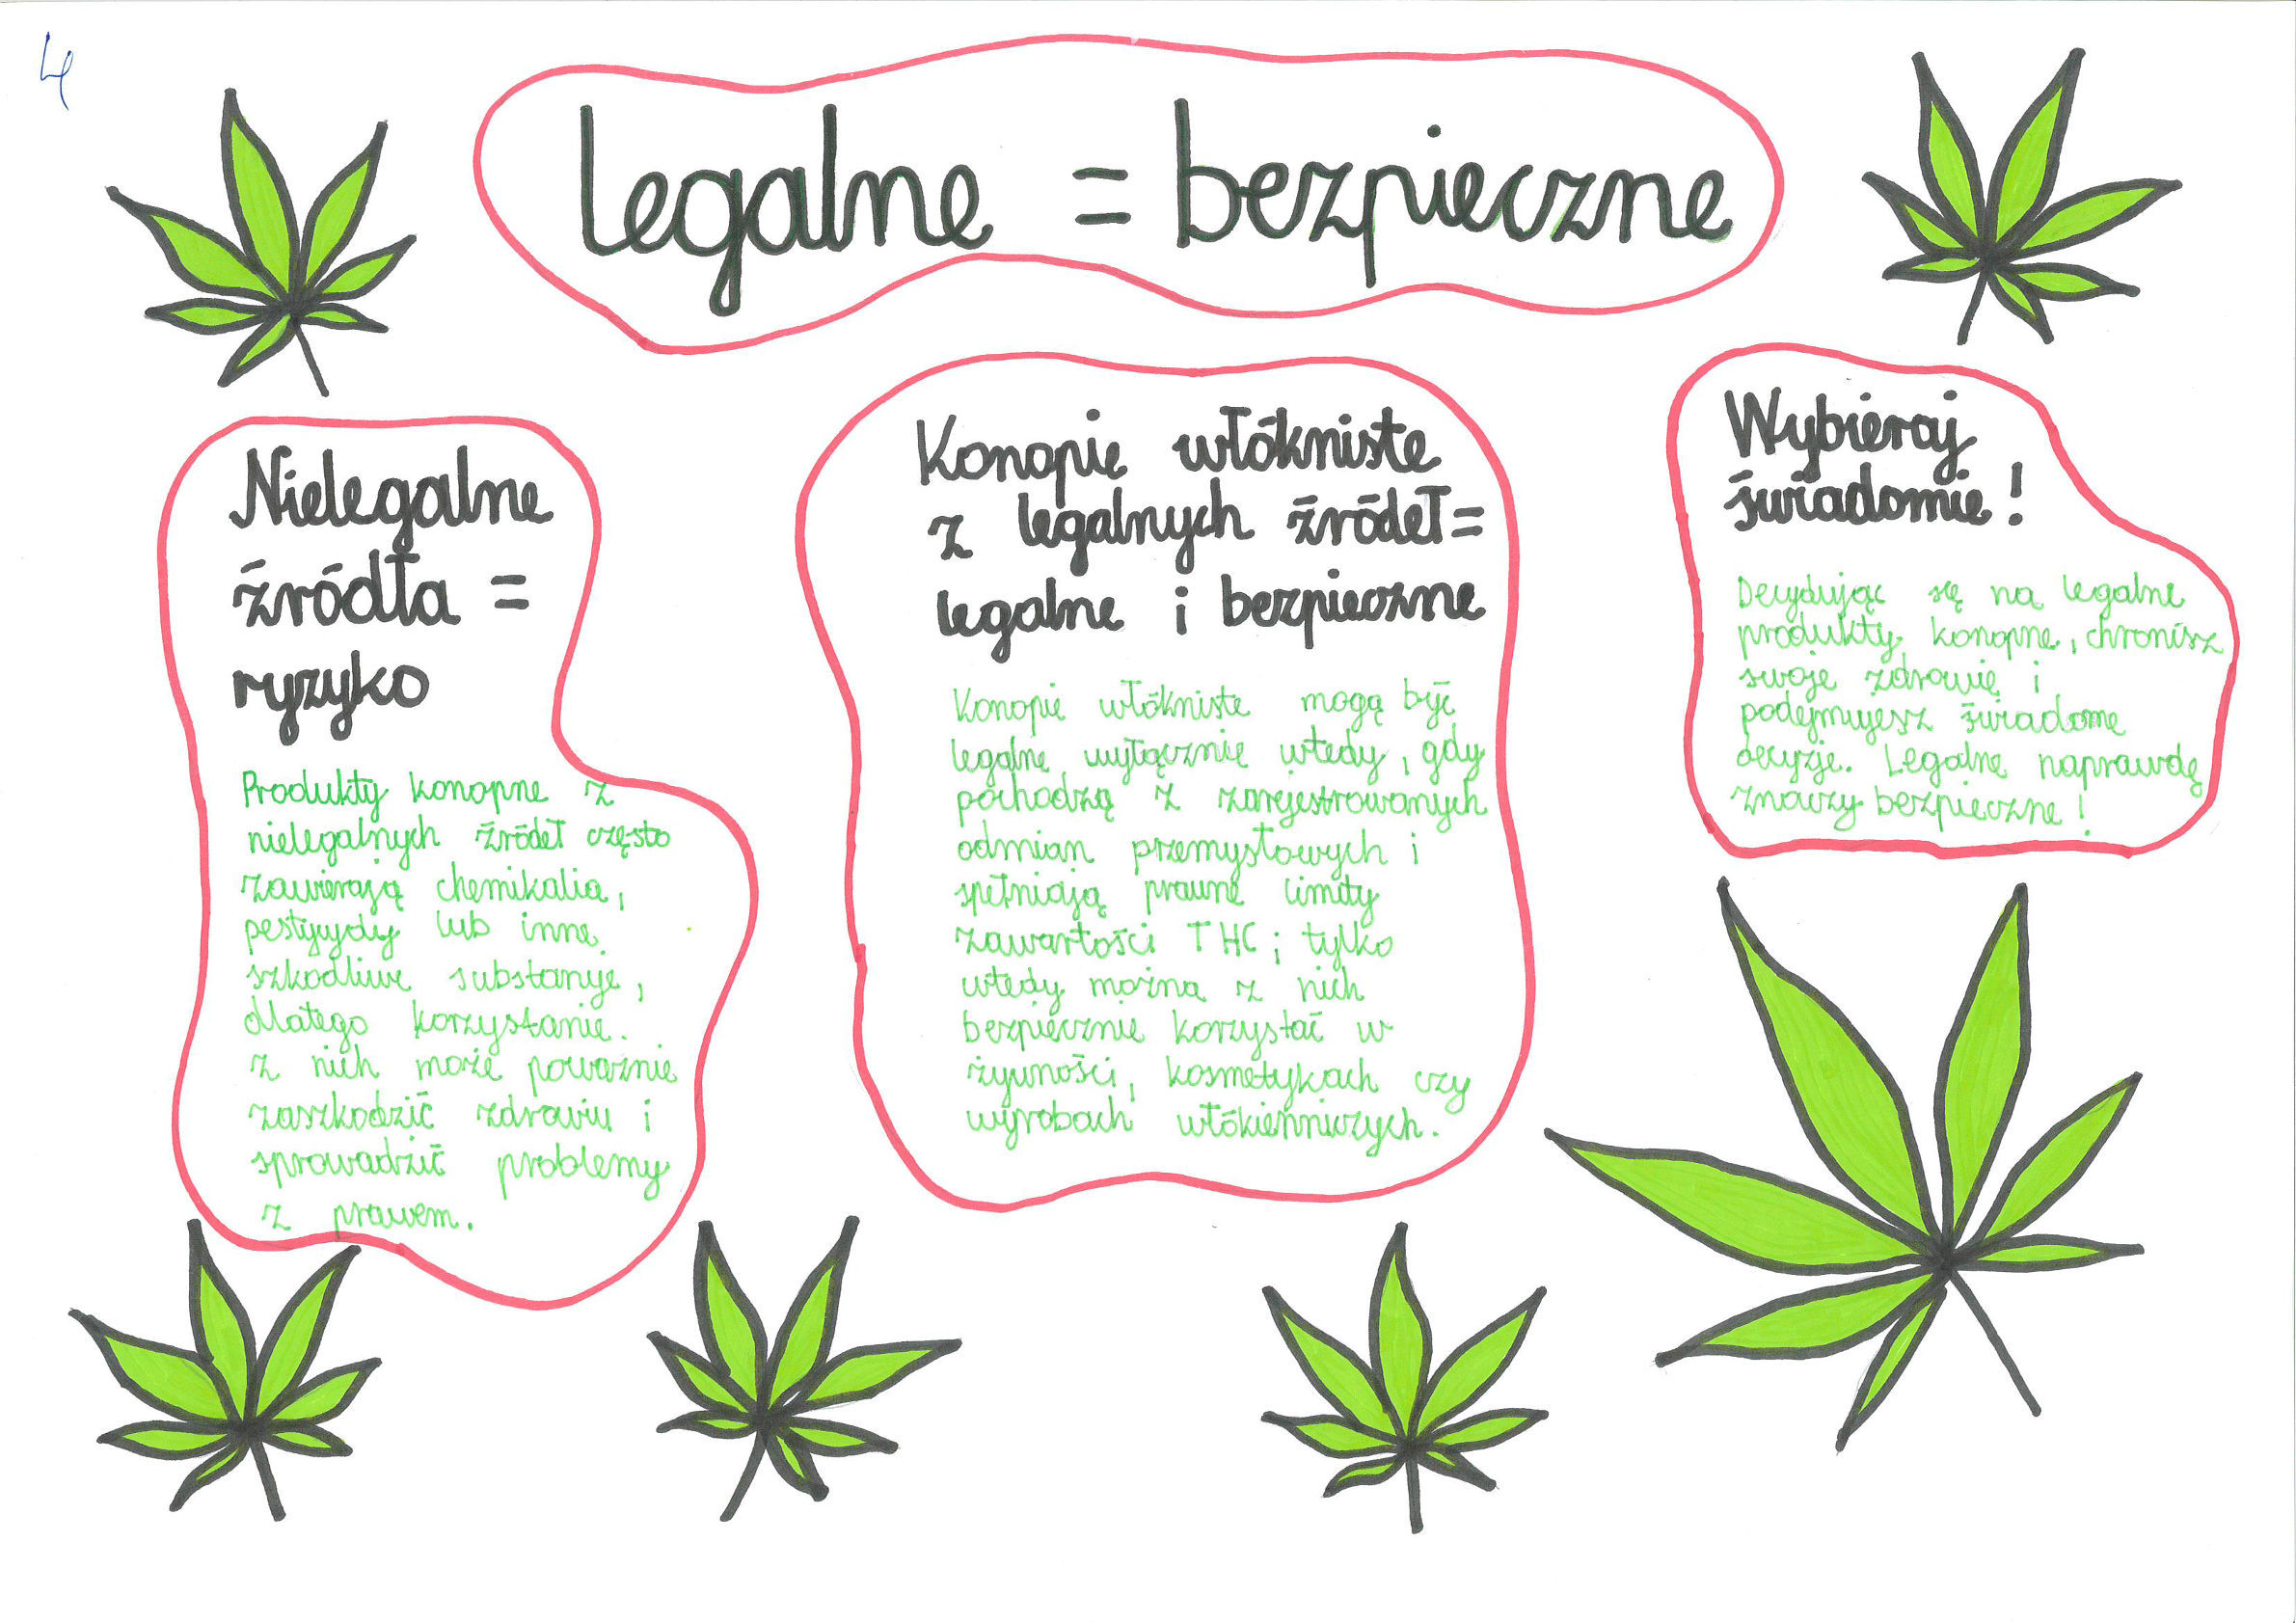 4
legalne = bezpieczne
Nielegalne
źródła =
ryzyko
Produkty konopne z
nielegalnych źródeł często
zawierają chemikalia,
pestycydy lub inne
szkodliwe substancje,
dlatego korzystanie.
z nich może poważnie
zaszkodzić zdrowiu i
sprowadzić problemy
z prawem.
Konopie włókniste
z legalnych źródeł =
legalne i bezpieczne
Konopie włókniste mogą być
legalne wyłącznie wtedy, gdy
pochodzą z zarejestrowanych
odmian przemysłowych i
spełniają prawne limity
zawartości THC; tylko
wtedy można z nich
bezpiecznie korzystać w
żywności, kosmetykach czy
wyrobach włókienniczych.
Wybieraj
świadomie!
Decydując się na legalne
produkty konopne, chronisz
swoje zdrowie i
podejmujesz świadome
decyzje. Legalne naprawdę
znaczy bezpieczne!